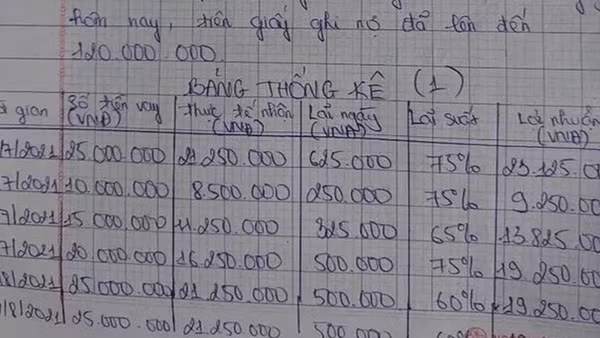 hôm nay, trên giấy ghi nợ đã lên đến
120.000.000.
BẢNG THỐNG KÊ (1)
gian Số tiền vay (VNĐ) Thực tế nhận (VNĐ) Lãi ngày (VNĐ) Lãi suất Lợi nhuận (VNĐ)
7/2021 25.000.000 21.250.000 625.000 75% 23.125.0
7/2021 10.000.000 8.500.000 250.000 75% 9.250.00
7/2021 15.000.000 11.250.000 325.000 65% 13.825.00
7/2021 20.000.000 16.250.000 500.000 75% 19.250.00
8/2021 25.000.000 21.250.000 500.000 60% 19.250.00
/8/2021 25.000.000 21.250.000 500.000